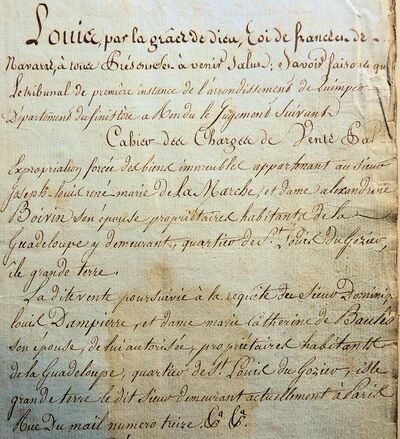 Louis, par la grace de dieu, Roi de france et de
Navarre, à tous Présens et à venir Salut; Savoir faisons que
Le tribunal de première instance de l'arrondissement de Quimper
Département du finistère a Rendu le Jugement Suivant
Cahier des Charges de Vente Par
Expropriation forcée des biens immeubles appartenant au Sieur
Joseph Louis rené marie de La Marche, et dame alexandrine
Boivin Son épouse propriétaires habitants de la
Guadeloupe y demeurant, quartier de St. Louis du Gozier,
ile grande terre.
La dite vente poursuivie à la requête du Sieur Dominiq
louis Dampierre, et dame marie Catherine de
Son épouse, de lui autorisée, propriétaires habitants
de la Guadeloupe, quartier de St Louis du Gozier, isle
grande terre le dit Sieur demeurant actuellement à Paris
Rue Du mail numero